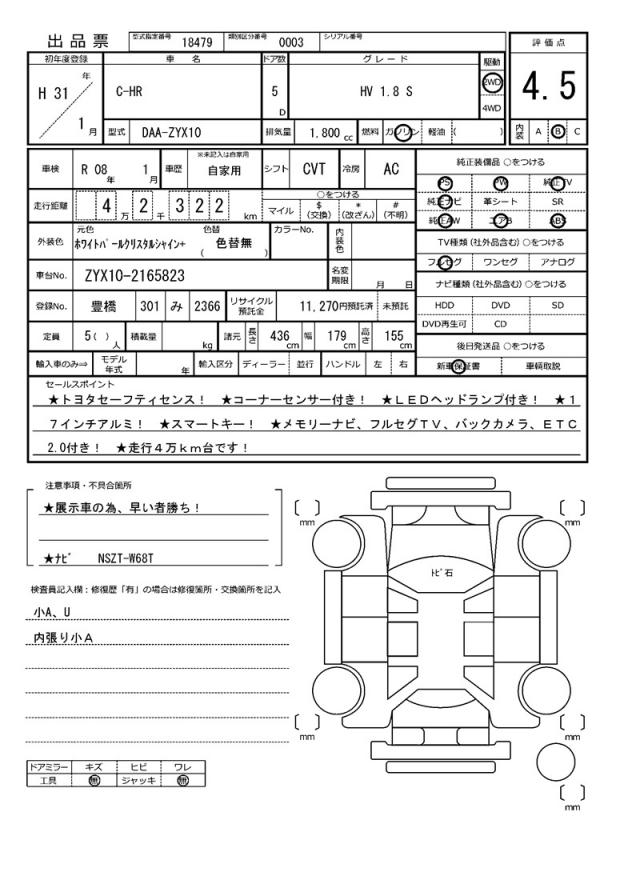 出品票 型式指定番号 18479 類別区分番号 0003 シリアル番号
初年度登録 車名 ドア数 グレード 駆動 評価点
H 31 年 1 月 C-HR 5 D HV 1.8 S 2WD 4WD 4.5
型式 DAA-ZYX10 排気量 1.800 cc 燃料 ガソリン 軽油 ( ) 内装 A B C
車検 R 08 年 1 月 車歴 ※未記入は自家用 自家用 シフト CVT 冷房 AC 純正装備品 ○をつける
PS PW 純正TV
走行距離 4 万 2 千 3 2 2 km ○をつける
マイル $ (交換) * (改ざん) # (不明) 純正ナビ 革シート SR
純正AW エアB ABS
外装色 元色 ホワイトパールクリスタルシャイン+ 色替 ( 色替無 ) カラーNo. 内装色 TV種類 (社外品含む) ○をつける
フルセグ ワンセグ アナログ
車台No. ZYX10-2165823 名変期限 月 日 ナビ種類 (社外品含む) ○をつける
登録No. 豊橋 301 み 2366 リサイクル預託金 11,270円預託済 未預託 HDD DVD SD
DVD再生可 CD
定員 5( ) 人 積載量 kg 諸元 長さ 436 cm 幅 179 cm 高さ 155 cm 後日発送品 ○をつける
輸入車のみ⇒ モデル年式 年 輸入区分 ディーラー 並行 ハンドル 左 右 新車保証書 車輌取説
セールスポイント
★トヨタセーフティセンス！ ★コーナーセンサー付き！ ★ＬＥＤヘッドランプ付き！ ★１
７インチアルミ！ ★スマートキー！ ★メモリーナビ、フルセグＴＶ、バックカメラ、ＥＴＣ
2.0付き！ ★走行４万ｋｍ台です！
注意事項・不具合箇所
★展示車の為、早い者勝ち！
★ﾅﾋﾞ NSZT-W68T
検査員記入欄：修復歴「有」の場合は修復箇所・交換箇所を記入
小A、U
内張り小Ａ
ドアミラー キズ ヒビ ワレ
工具 無 ジャッキ 無
mm
mm
ﾄﾋﾞ石
mm
mm
mm